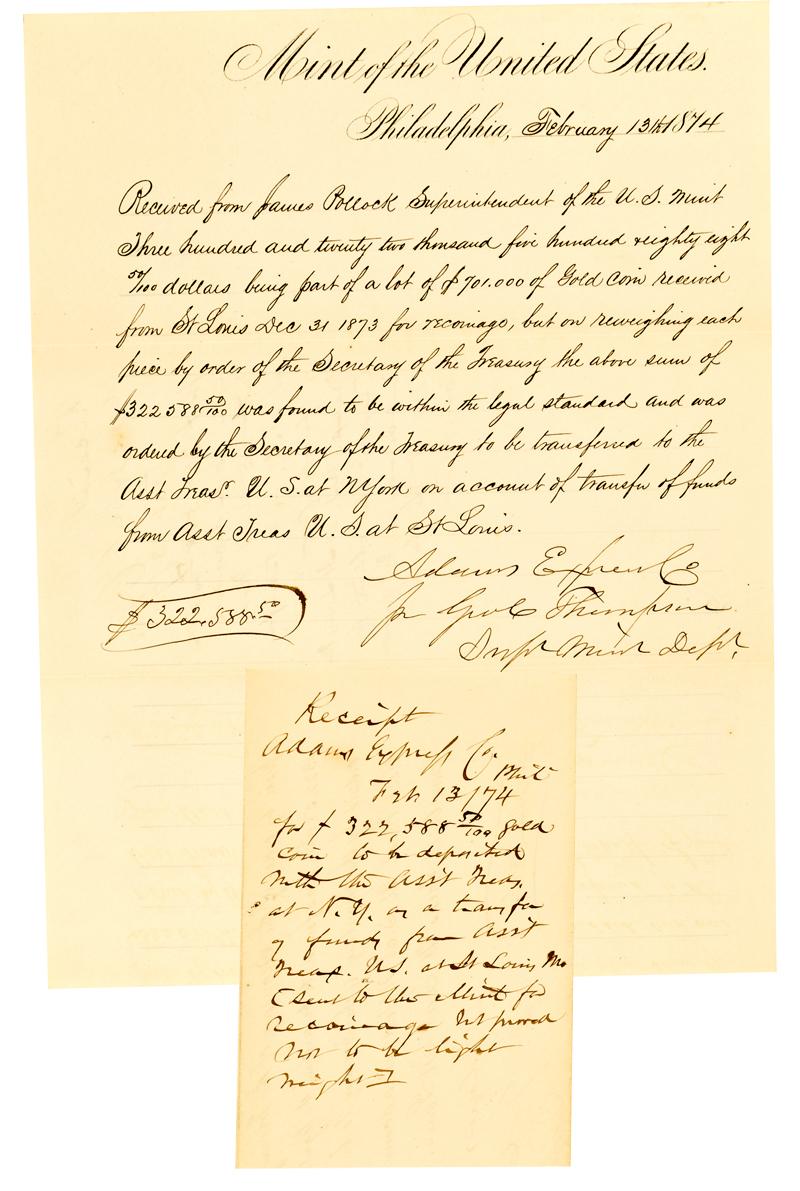 Mint of the United States.
Philadelphia, February 13th 1874
Received from James Pollock Superintendent of the U.S. Mint
Three hundred and twenty two thousand five hundred & eighty eight
50/100 dollars being part of a lot of $701.000 of Gold Coin received
from St Louis Dec 31 1873 for recoinage, but on reweighing each
piece by order of the Secretary of the Treasury the above sum of
$322588 50/100 was found to be within the legal standard and was
ordered by the Secretary of the Treasury to be transferred to the
Asst Treasr. U.S. at N York on account of transfer of funds
from Asst Treas U.S. at St Louis.
Adams Express Co
$322.588.50
pr Geo C Thompson
Supt Mint Dept.
Receipt
Adams Express Co.
Mint
Feb 13/74
for $ 322,588 50/100 gold
coin to be deposited
with the Asst Treas.
at N.Y. on a transfer
of funds from Asst
Treas. U.S. at St Louis Mo
(sent to the Mint for
recoinage but proved
not to be light
weight]